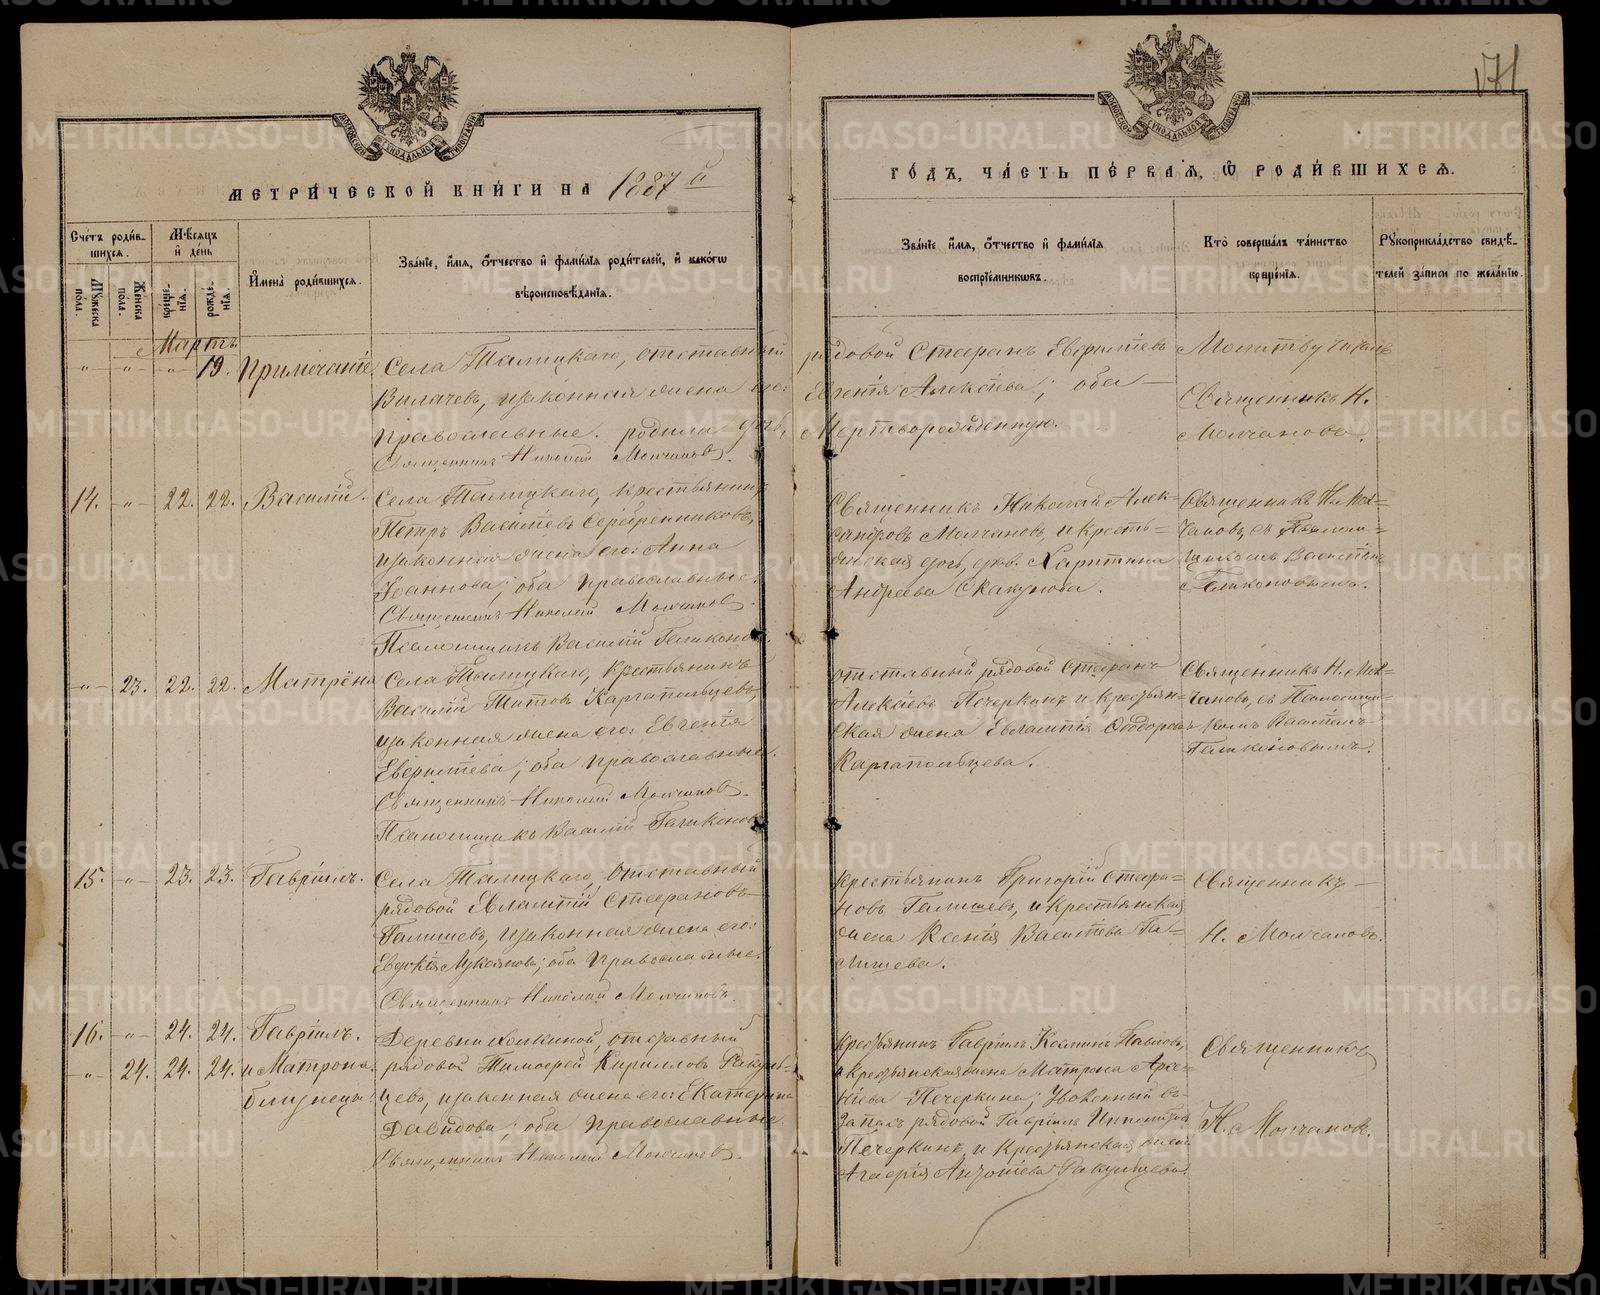 171
МЕТРИ́ЧЕСКОЙ КНИ́ГИ НА 1887 й
ГО́ДЪ, ЧА́СТЬ ПЕ́РВАѦ, Ѡ҆ РОДИ́ВШИХСѦ.
Сче́тъ роди́в-
шихсѧ.
Мѣ́сѧцъ
и҆ де́нь
Мꙋ́жеска
по́ла.
Же́нска
по́ла.
креще́-
нїѧ.
рожде́-
нїѧ.
И҆мена̀ роди́вшихсѧ.
Зва́нїе, и҆́мѧ, ѻ҆́тчество и҆ фамі́лїѧ роди́телей, и҆ како́гѡ
вѣроисповѣ́данїѧ.
Зва́нїе и҆́мѧ, ѻ҆́тчество и҆ фамі́лїѧ
воспрїе́мникѡвъ.
Кто̀ соверша́лъ та́инство
креще́нїѧ.
Рꙋкоприкла́дство свидѣ́-
телей за́писи по жела́нїю.
Мартъ
" " " 19. Примечаніе
Села Талицкаго, отставный
рядовой Стефанъ Евфиміевъ
Вилачевъ, изаконная жена его:
Евгенія Алексіева; оба
православные. родили дочь,
Мертворожденную.
Священникъ Николай Молчановъ.
Молитву читалъ
Священникъ Н.
Молчановъ.
14. " 22. 22. Василій.
Села Талицкаго, крестьянинъ
Петръ Васильевъ Серебренниковъ,
изаконная жена его: Анна
Іоаннова; оба православные.
Священникъ Николай Молчановъ.
Псаломщикъ Василій Галиконовъ.
Священникъ Николай Алек-
сандровъ Молчановъ, и кресть-
янская дочь, дѣв. Харитина
Андреева Скакунова.
Священникъ Н. Мол-
чановъ, съ Псалом-
щикомъ Василіемъ
Галиконовымъ.
" 23. 22. 22. Матрёна
Села Талицкаго, крестьянинъ
Василій Титовъ Каргапольцевъ,
изаконная жена его: Евгенія
Евфиміева; оба православные.
Священникъ Николай Молчановъ.
Псаломщикъ Василій Галиконовъ
отставный рядовой Стефанъ
Алексіевъ Печеркинъ и крестьян-
ская жена Евлампія Ѳеодорова
Каргапольцева.
Священникъ Н. Мол-
чановъ, съ Псаломщи-
комъ Василіемъ
Галиконовымъ.
15. " 23. 23. Гавріилъ.
Села Талицкаго, отставный
рядовой Евлампій Стефановъ
Галишевъ, изаконная жена его:
Евдокія Лукіянова; оба православные.
Священникъ Николай Молчановъ.
Крестьянинъ Григорій Стефа-
новъ Галишевъ, и крестьянская
жена Ксенія Васильева Га-
лишева.
Священникъ
Н. Молчановъ.
16. " 24. 24. Гавріилъ.
" 24. 24. 24. и Матрона.
близнецы.
Деревни отставный
рядовой Тимофей Кирилловъ Ракуль-
цевъ, изаконная жена его: Екатерина
Давидова; оба православные
Священникъ Николай Молчановъ.
Крестьянинъ Гавріилъ Косминъ Павловъ,
и крестьянская жена Матрона
Печеркина; Уволенный въ
запасъ рядовой Гавріилъ
Печеркинъ, и крестьянская жена
Агафія Ракульцева.
Священникъ
Н. Молчановъ.